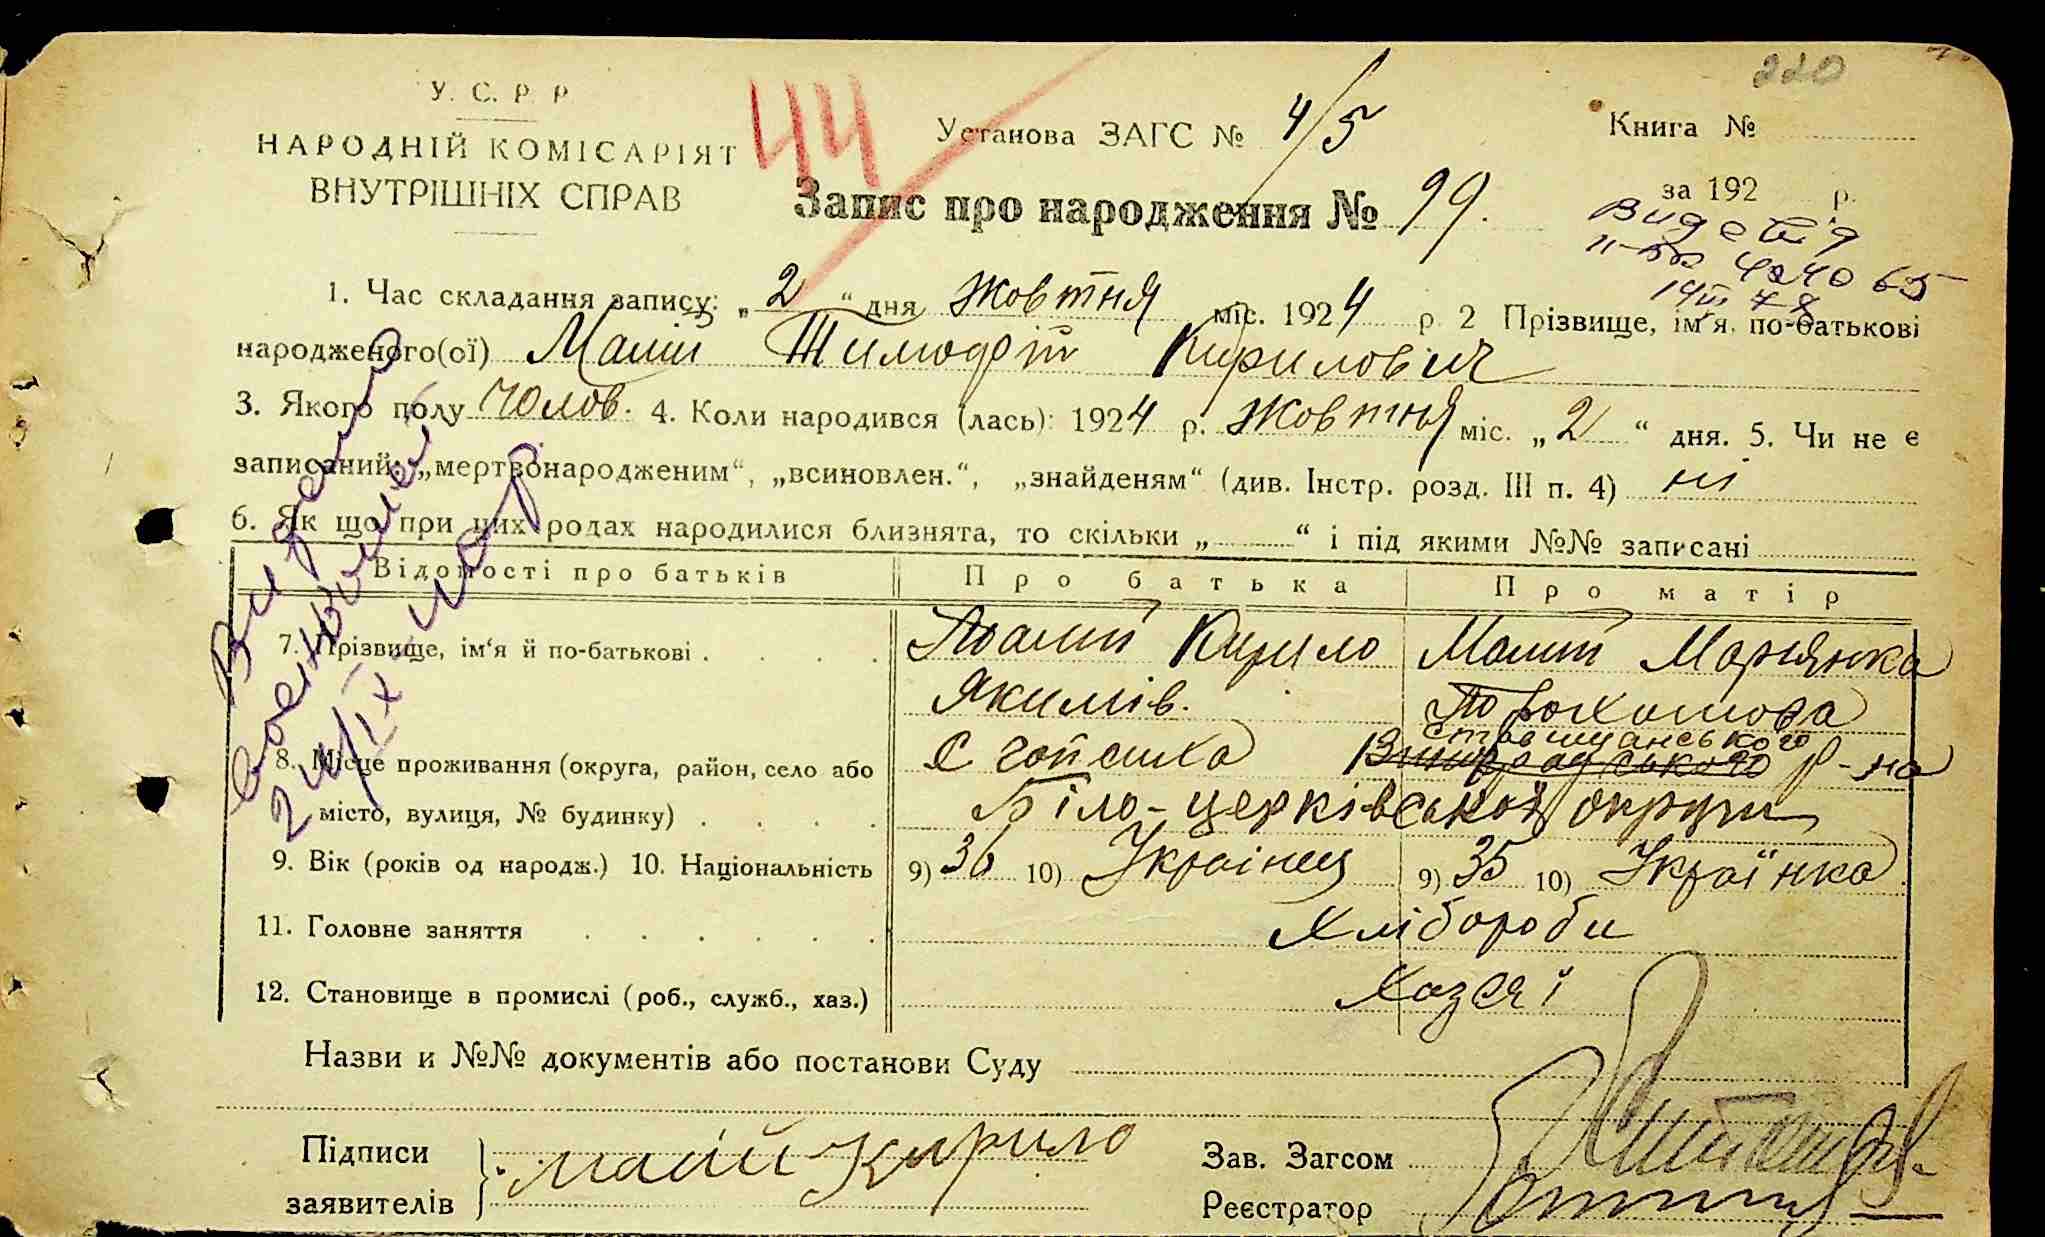 220
У. С. Р. Р
НАРОДНІЙ КОМІСАРІЯТ
ВНУТРІШНІХ СПРАВ
44
Установа ЗАГС № 4/5
Книга №
за 192 р.
Запис про народження № 99.
1. Час складання запису: „2“ дня Жовтня міс. 1924 р. 2 Прізвище, ім'я, по-батькові
народженого(ої) Малий Тимофій Кирилович
3. Якого полу чолов. 4. Коли народився (лась): 1924 р. Жовтня міс. „2“ дня. 5. Чи не є
записаний: „мертвонародженим“, „всиновлен.“, „знайденям“ (див. Інстр. розд. III п. 4) ні
6. Як що при цих родах народилися близнята, то скільки „ “ і під якими №№ записані
Відомості про батьків Про батька Про матір
7. Прізвище, ім'я й по-батькові . . . . Малий Кирило Малий Маріянка
Якимів.
8. Місце проживання (округа, район, село або Ставищанського р-на
місто, вулиця, № будинку) . . . . Біло-церківської округи
9. Вік (років од народж.) 10. Національність 9) 36 10) Українец 9) 35 10) Українка
11. Головне заняття . . . . . . Хлібороби
12. Становище в промислі (роб., служб., хаз.) Хазяї
Назви и №№ документів або постанови Суду
Підписи
заявителів
Малий Кирило
Зав. Загсом
Реєстратор